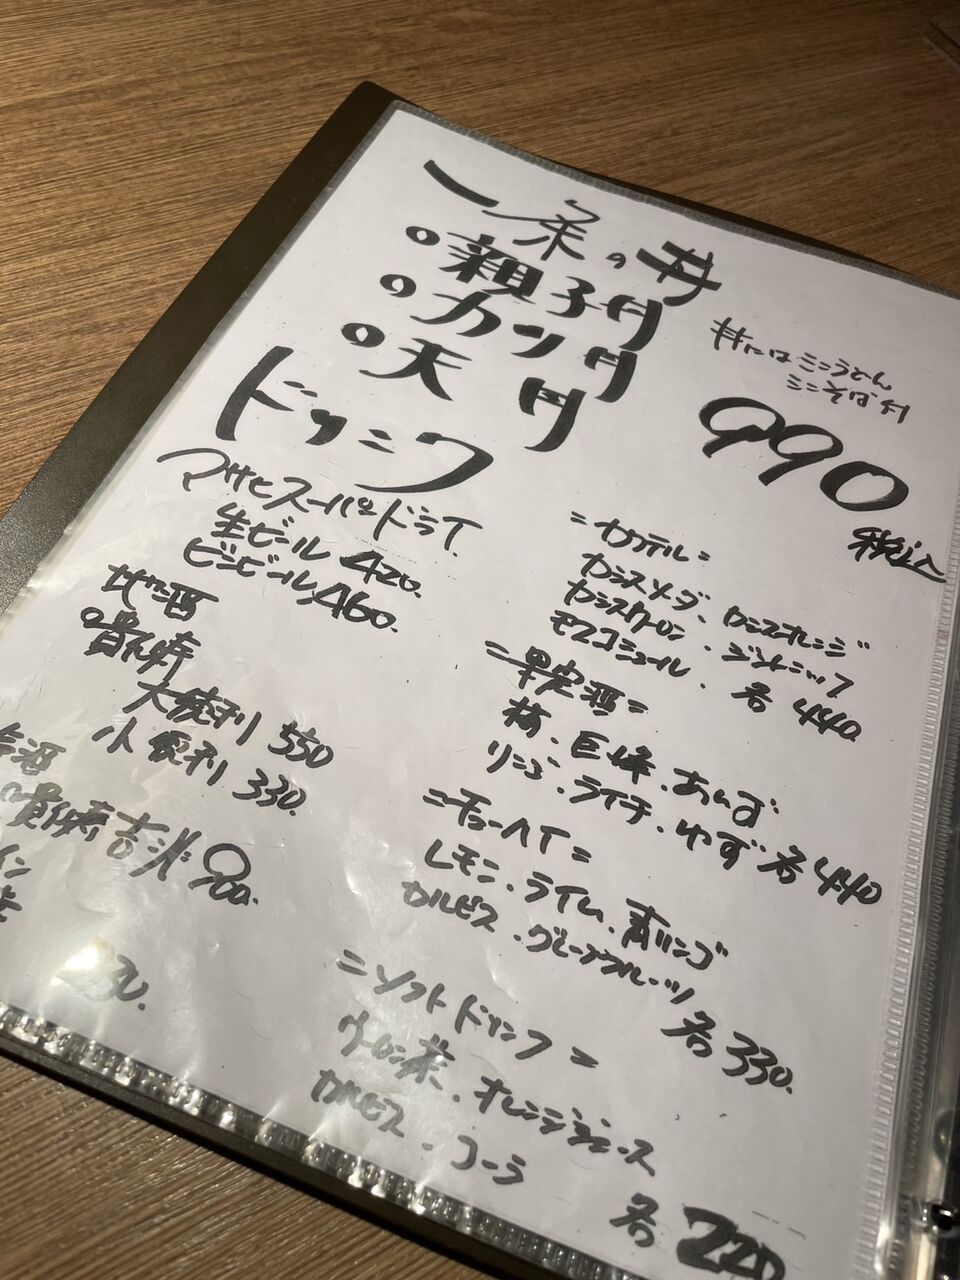 一条の丼
○親子丼
○カツ丼
○天丼
丼にはミニうどん
ミニそば付
990
税込
ドリンク
アサヒスーパードライ
生ビール 420.
ビンビール 460.
地酒
○貴仙寿
大徳利 550
小徳利 330.
吉酒
○貴仙寿吉兆 900.
イン
330.
=カクテル=
カシスソーダ、カシスオレンジ
カシスウーロン・ジントニック
モスコミュール. 各 440.
=果実酒=
梅・巨峰・あんず
リンゴ・ライチ・ゆず 各440
=チューハイ=
レモン・ライム・青リンゴ
カルピス・グレープフルーツ
各330.
=ソフトドリンク=
ウーロン茶・オレンジジュース
カルピス・コーラ
各 220